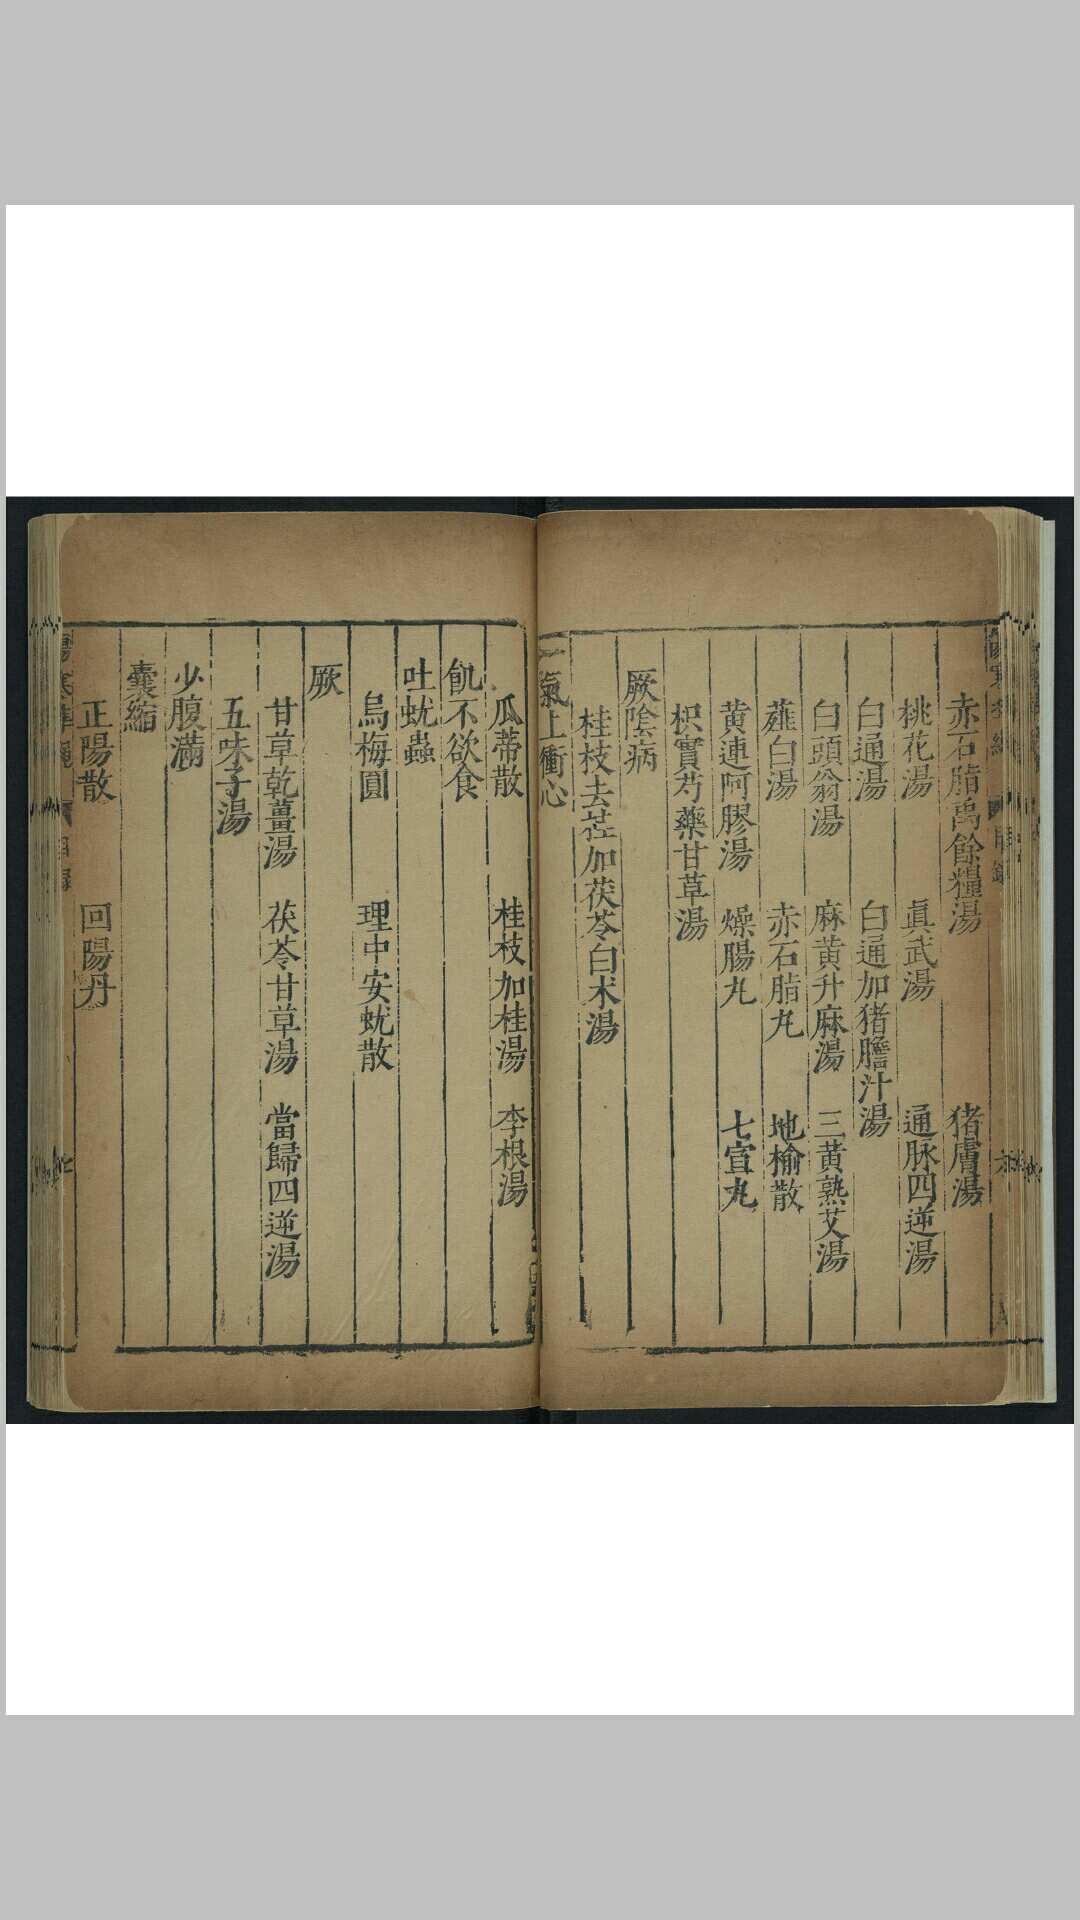 赤石脂禹餘糧湯 猪膚湯
桃花湯 眞武湯 通脉四逆湯
白通湯 白通加猪膽汁湯
白頭翁湯 麻黄升麻湯 三黄熟艾湯
薤白湯 赤石脂丸 地榆散
黄連阿膠湯 燥腸丸 七宣丸
枳實芍藥甘草湯
厥陰病
桂枝去芏加茯苓白术湯
氣上衝心
瓜蒂散 桂枝加桂湯 李根湯
飢不欲食
吐蚘蟲
烏梅圓 理中安蚘散
厥
甘草乾薑湯 茯苓甘草湯 當歸四逆湯
五味子湯
少腹滿
囊縮
正陽散 回陽丹